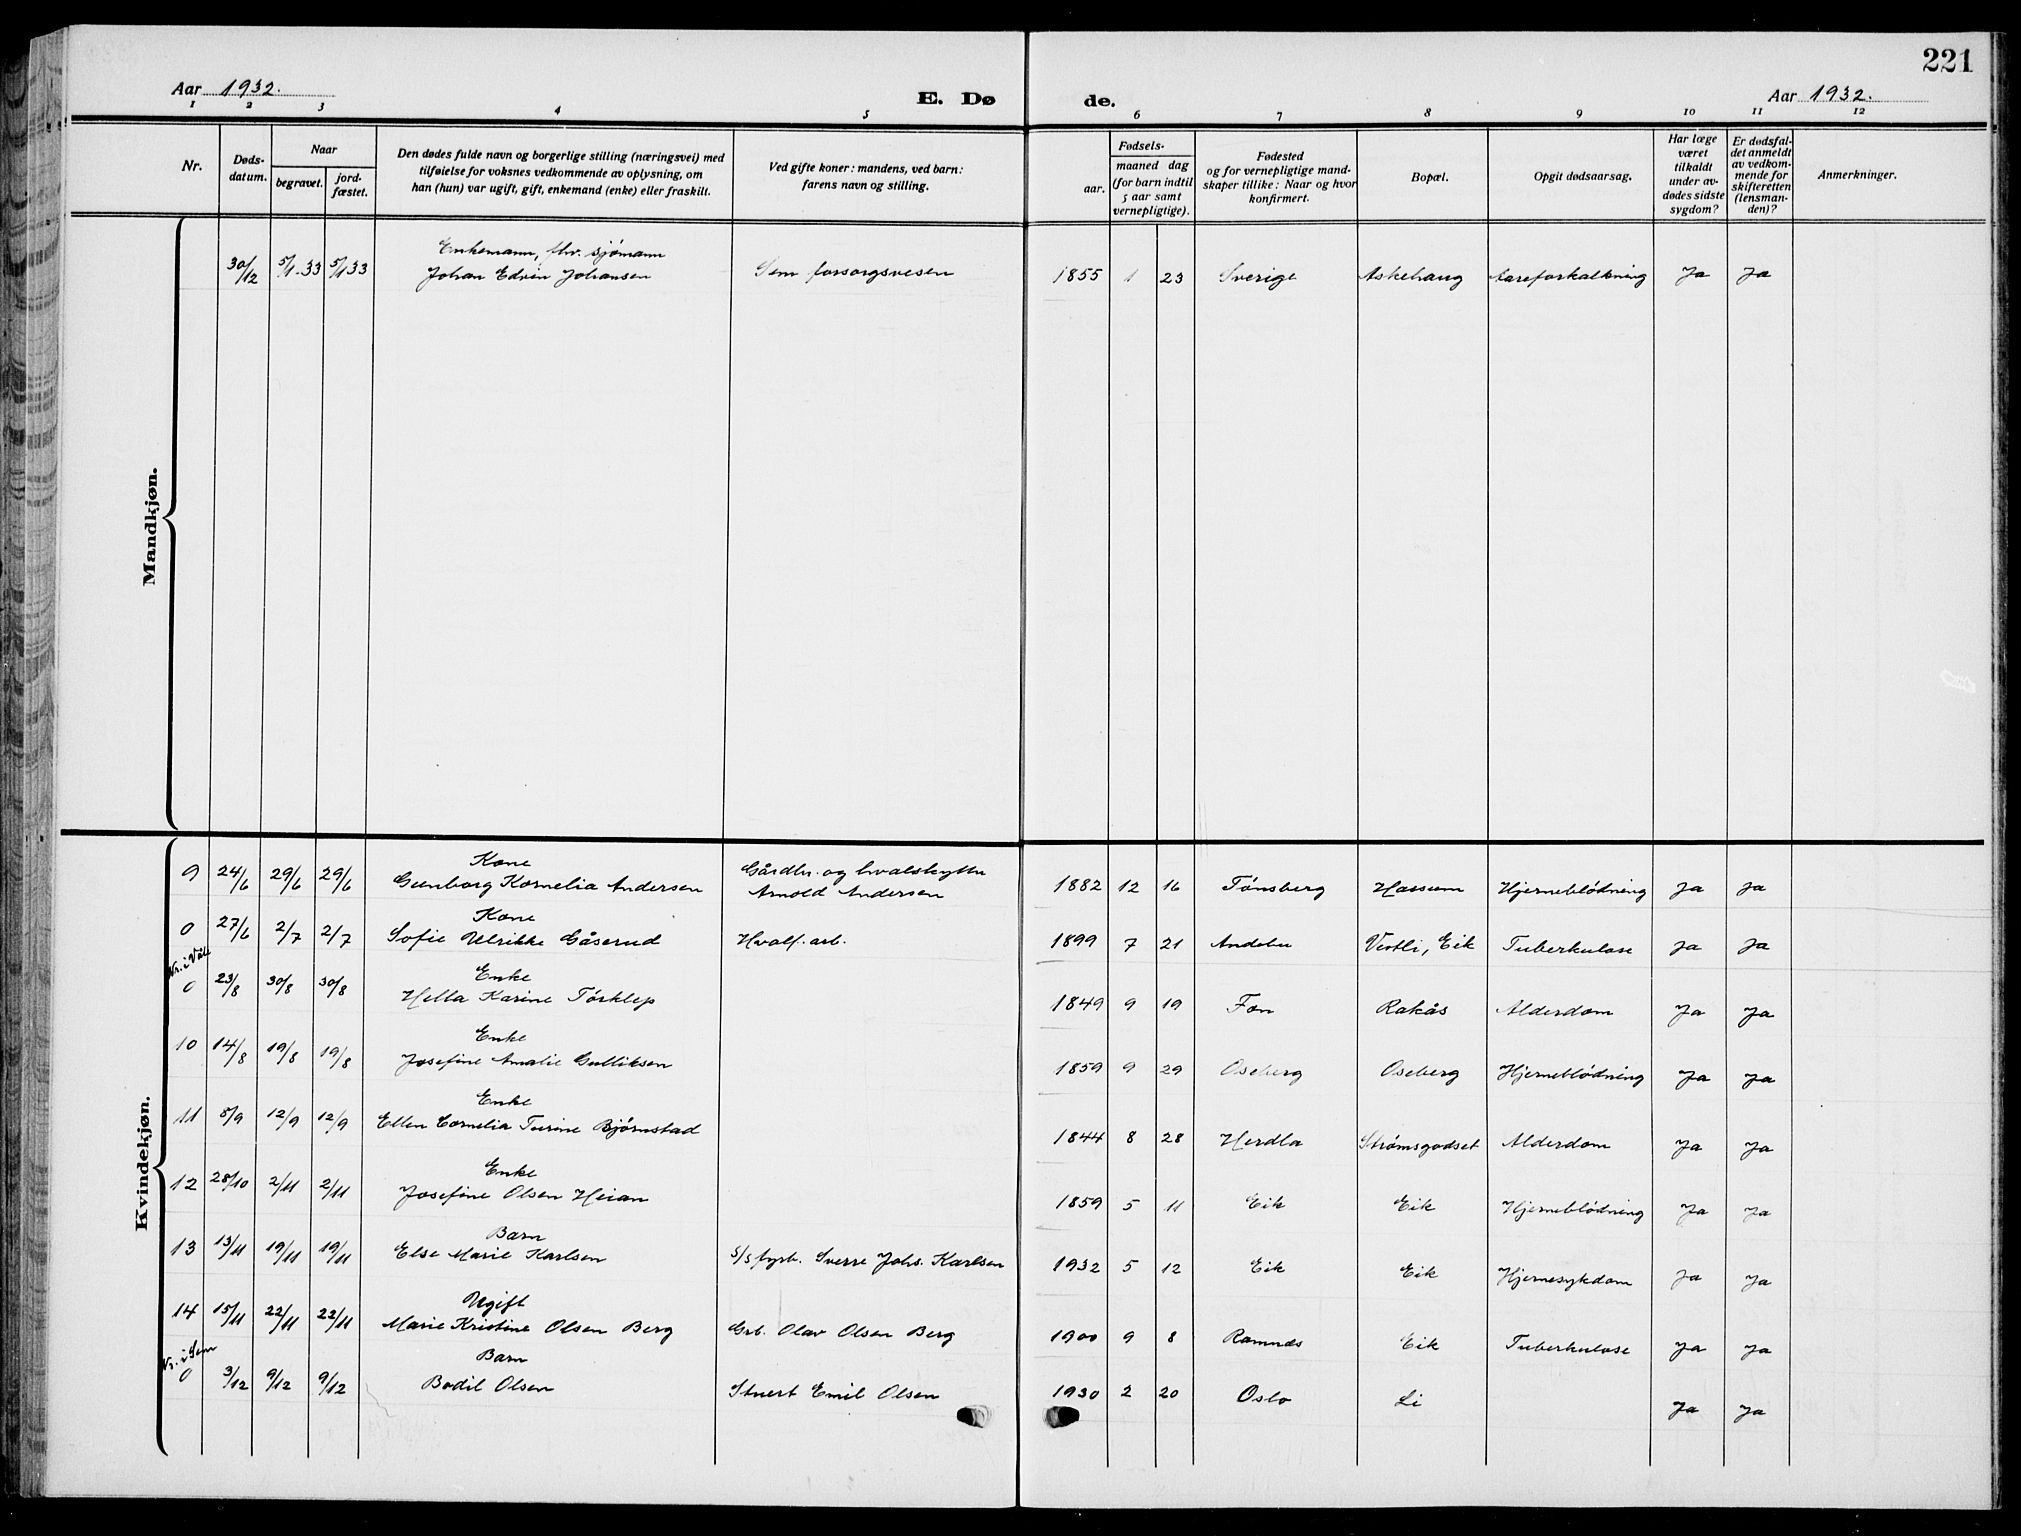 221
Aar 1932.
E. Dø
de.
Aar 1932.
1 2 3 4 5 6 7 8 9 10 11 12
Nr.
Døds-
datum.
Naar
begravet.
jord-
fæstet.
Den dødes fulde navn og borgerlige stilling (næringsvei) med
tilføielse for voksnes vedkommende av oplysning, om
han (hun) var ugift, gift, enkemand (enke) eller fraskilt.
Ved gifte koner: mandens, ved barn:
farens navn og stilling.
Fødsels-
aar.
maaned dag
(for barn indtil
5 aar samt
vernepligtige).
Fødested
og for vernepligtige mand-
skaper tillike: Naar og hvor
konfirmert.
Bopæl.
Opgit dødsaarsag.
Har læge
været
tilkaldt
under av-
dødes sidste
sygdom?
Er dødsfal-
det anmeldt
av vedkom-
mende for
skifteretten
(lensman-
den)?
Anmerkninger.
Mandkjøn.
Enkemann, fhv. sjømann
30/12 5/1-33 5/1 33 Johan Edvin Johansen Sem forsorgsvesen 1855 1 23 Sverige Askehaug Aareforkalkning Ja Ja
Kvindekjøn.
Kone Gårdbr. og hvalskytter
9 24/6 29/6 29/6 Gunborg Kornelia Andersen Arnold Andersen 1882 12 16 Tønsberg Hassum Hjerneblødning Ja Ja
Kone
0 27/6 2/7 2/7 Sofie Ulrikke Gåserud Hvalf. arb. 1899 7 21 Andebu Vestli, Eik Tuberkulose Ja Ja
Nr. i Våle Enke
0 23/8 30/8 30/8 Hella Karine Tørklep 1849 9 19 Fon Rakås Alderdom Ja Ja
Enke
10 14/8 19/8 19/8 Josefine Amalie Gulliksen 1859 9 29 Oseberg Oseberg Hjerneblødning Ja Ja
Enke
11 8/9 12/9 12/9 Ellen Cornelia Turine Bjørnstad 1844 8 28 Herdla Strømsgodset Alderdom Ja Ja
Enke
12 28/10 2/11 2/11 Josefine Olsen Heian 1859 5 11 Eik Eik Hjerneblødning Ja Ja
Barn
13 13/11 19/11 19/11 Else Marie Karlsen s/s fyrb. Sverre Johs. Karlsen 1932 5 12 Eik Eik Hjernesykdom Ja Ja
Ugift
14 15/11 22/11 22/11 Marie Kristine Olsen Berg Grb. Olav Olsen Berg 1900 9 8 Ramnes Eik Tuberkulose Ja Ja
Nr. i Sem Barn
0 3/12 9/12 9/12 Bodil Olsen Stuert Emil Olsen 1930 2 20 Oslo Li Ja Ja